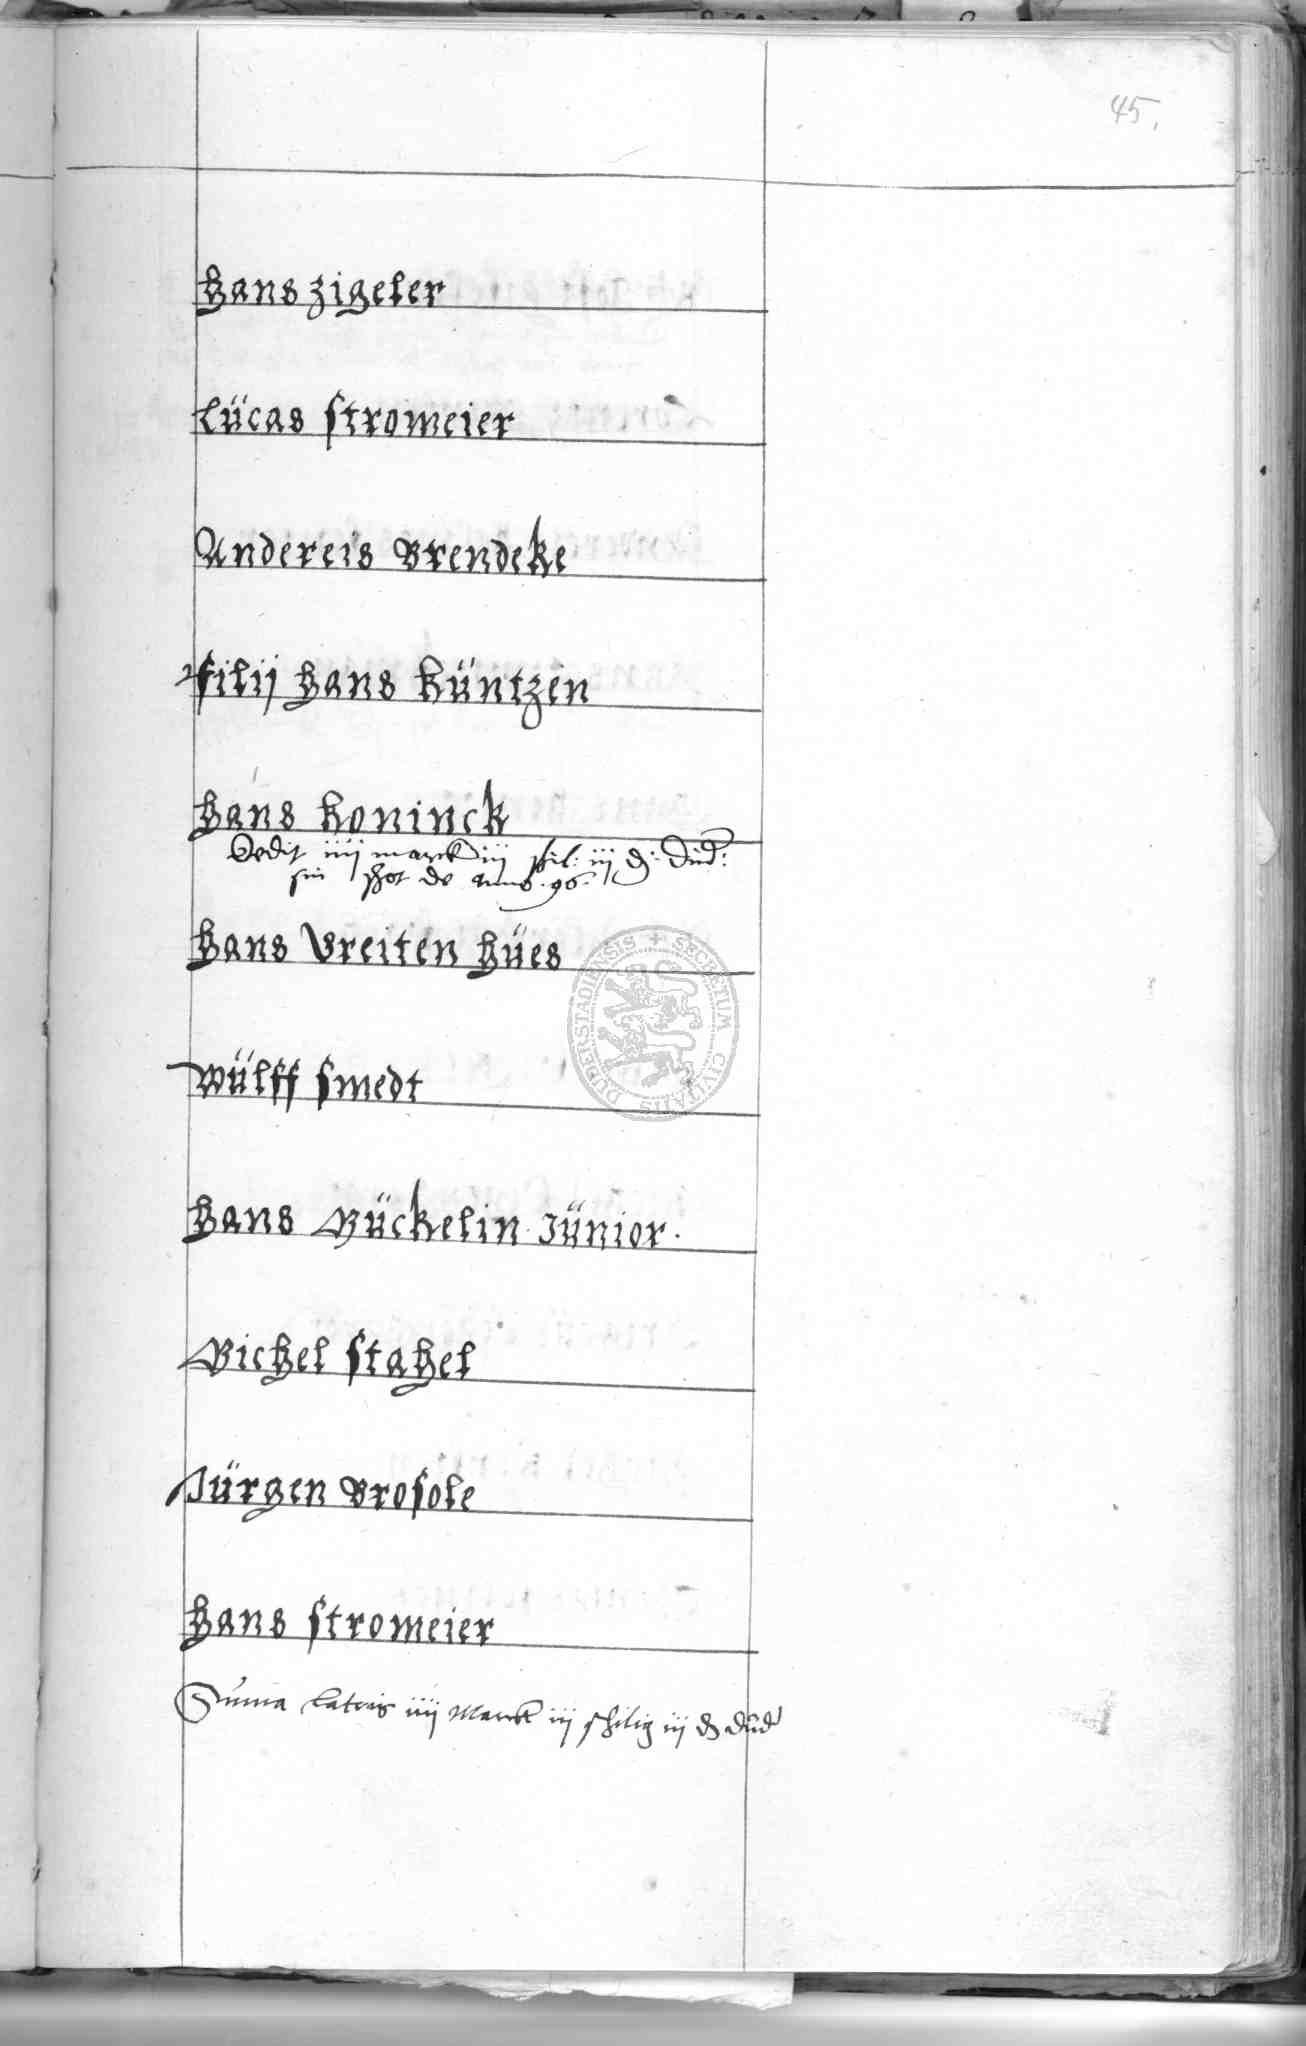 45.
Hans Zigeler
Lücas Stromeier
Andereis Brendeke
filij Hans Küntzen
Hans Koninck
Dedit iiij marck iij ßil: iij d: Dud:
sin schot de anno .96.
Hans Breiten Hües
Wülff Smedt
Hans Bückelin Jünior.
Michel Stahel
Jürgen Brosole
Hans Stromeier
Suma lateris iiij Marck iij schilig iij d dud
SECRETUM CIVITATIS DUDERSTADIENSIS +